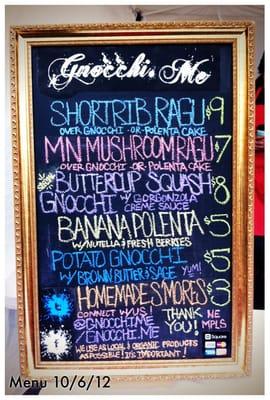 Gnocchi, Me
SHORTRIB RAGU $9
OVER GNOCCHI -OR- POLENTA CAKE
MN MUSHROOM RAGU $7
OVER GNOCCHI -OR- POLENTA CAKE
BUTTERCUP SQUASH $8
GNOCCHI W/ GORGONZOLA
CREME SAUCE
BANANA POLENTA $5
W/ NUTELLA & FRESH BERRIES
POTATO GNOCCHI $5
W/ BROWN BUTTER & SAGE YUM!
HOMEMADE S'MORES $3
CONNECT W/ US!
@GNOCCHIME
/GNOCCHI.ME
THANK
YOU!
NE
MPLS
Square
WE USE AS LOCAL & ORGANIC PRODUCTS
AS POSSIBLE! IT'S IMPORTANT!
Menu 10/6/12